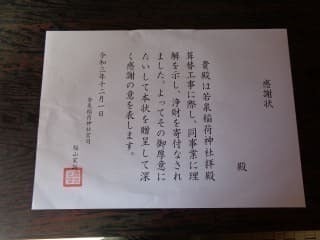 感謝状
殿
貴殿は若泉稲荷神社拝殿
葺替工事に際し、同事業に理
解を示し、浄財を寄付なされ
ました。よってその御厚意に
たいして本状を贈呈して深
く感謝の意を表します。
令和三年十二月一日
若泉稲荷神社宮司
福山